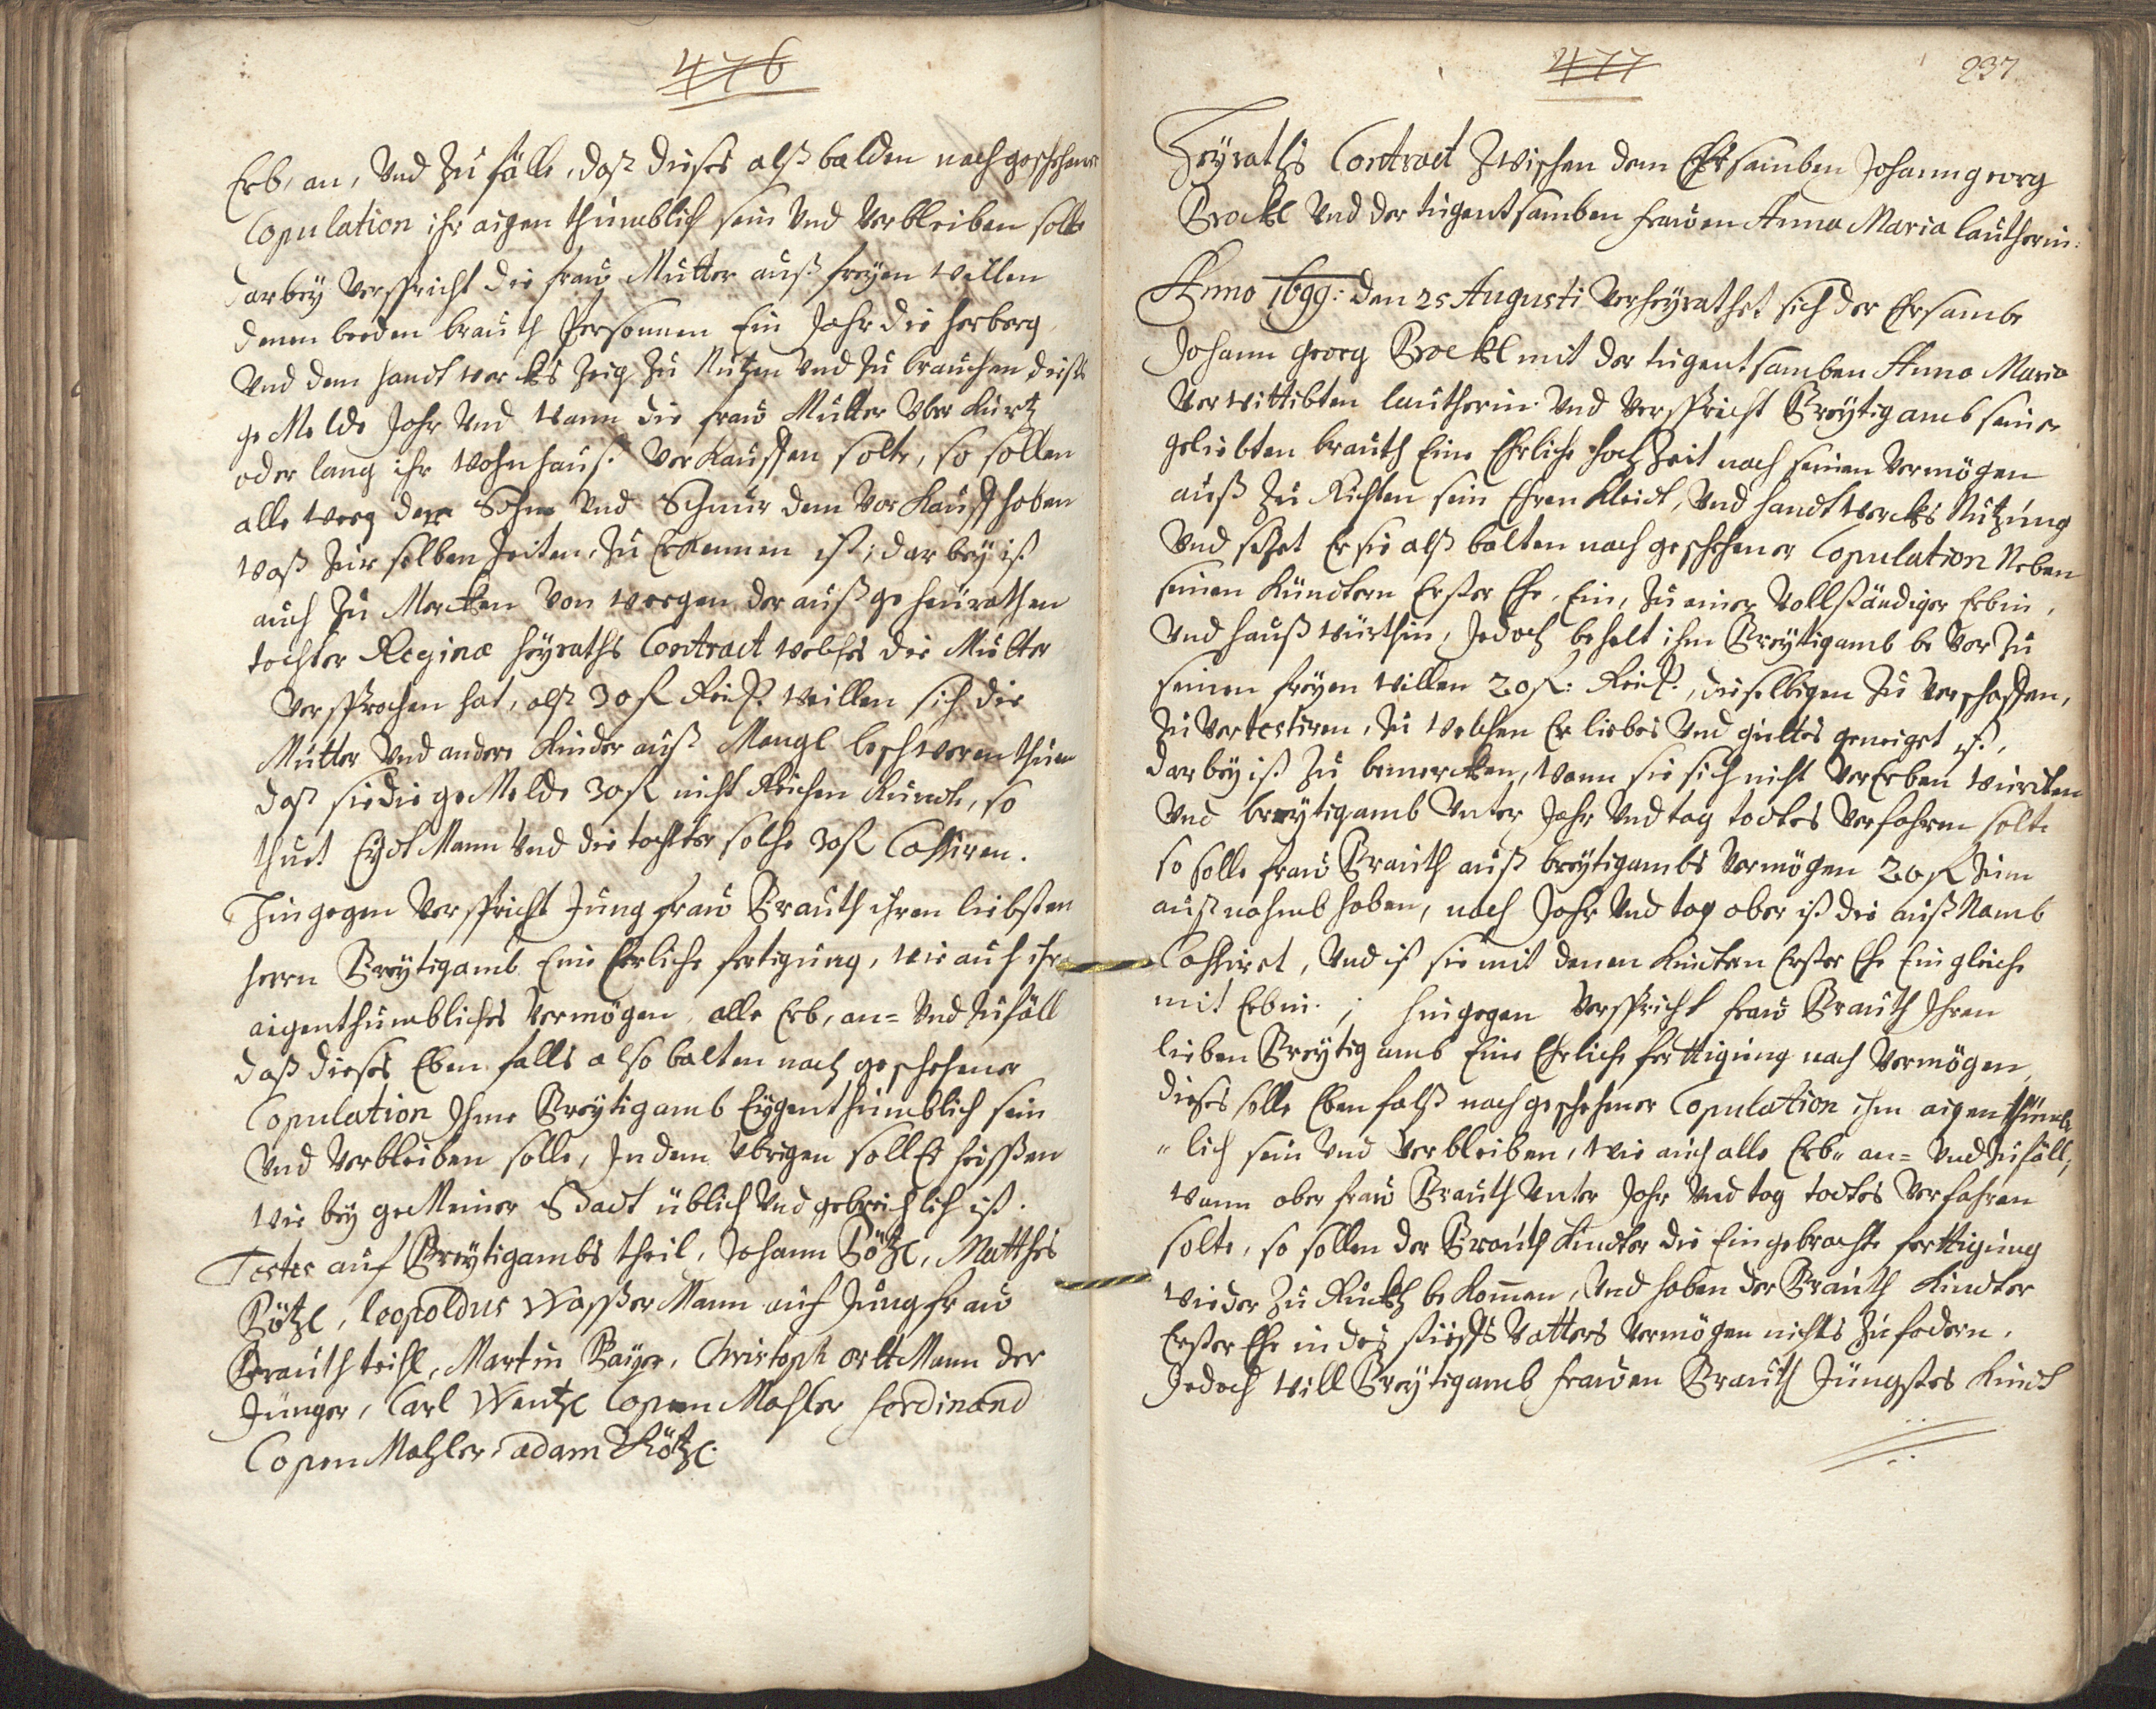 476
Erb, an, Vnd Zu fälle, daß dieses alß balden nach geschehener
Copulation ihr aigen thumblich sein Vnd Verbleiben solte
darbey Verspricht die fraw Mutter auß freyen Willen
denen beeden brauth Persohnen Ein Jahr die herberg,
Vnd dem handt wercks Zeig Zu Nutzen Vnd Zu brauchen dieses
ge Melde Jahr Vnd Wann die fraw Mutter Vber Kurtz
oder lang ihr Wohnhauß Verkauffen solte, so sollen
alle weeg der Sohn Vnd Schnur dem Vor Kauff haben
Waß Zur selben Zeiten, Zu Erkennen ist; dar bey ist
auch Zu Mercken Von weegen der auß ge heurathen
tochter Reginæ heyraths Contract welches die Mutter
Versprochen hat, alß 30 fl Reinß. Willen sich die
Mutter Vnd andere Kinder auß Mangl beschweren thuen
daß sie die ge Melde 30 fl nicht Reichen Kundte, so
thuet Eydt Mann Vnd die tochter solche 30 fl Cassiren.
Hingegen Verspricht Jungfraw Brauth ihren liebsten
herrn Breytigamb Eine Ehrliche fertigung, wie auch ihr
aigenthumbliches Vermögen, alle Erb, an= Vnd Zufäll
daß dieses Eben falls also balten nach geschehener
Copulation Ihme Breytigamb Eygenthumblich sein
Vnd Verbleiben solle, Indem Vbrigen soll Es heissßen
wie bey ge Meiner Stadt üblich Vnd gebreichlich ist.
Testes auf Breytigambs theil, Johann Pötzl, Matthes
Pötzl, leopoldus Wasser Mann auf Jungfraw
Brauth teihl, Martin Bayer, Christoph ortt Mann der
Jünger, Carl Wentzl Copen Mahler ferdinand
Copen Mahler, adam Pötzl.
477
237
Heyraths Contract Zwischen dem Ehrsamben Johann georg
Brockl Vnd der tugentsamben frawen Anna Maria lautherin:
Anno 1699: den 25 Augusti Verheyrathet sich der Ehrsambe
Johann georg Brockl mit der tugentsamben Anna Maria
Verwittibten lautherin Vnd Verspricht Breytigamb seiner
geliebten brauth Eine Ehrliche hochZeit nach seinen Vermögen
auß Zu Richten sein Ehren Kleidt, Vnd handtwercks Nutzung
Vnd setzet Er sie alß balten nach geschehener Copulation Neben
seinen Kündtern Erster Ehe, Ein, Zu einer Vollständiger Erbin,
Vnd hauß würthin, Jedoch behelt ihm Breytigamb be Vor Zu
seinen freyen Willen 20 fl: Reinß., dieselbigen Zu Verschaffen,
Zu Vertestiren, Zu welchen Er liebes Vnd guttes geneiget ist,
darbey ist Zu bemercken, Wann sie sich nicht Vererben wurdten
Vnd breytigamb Vnter Jahr Vnd tag todtes Verfahren solte
so solle fraw Brauth auß breytigambs Vermögen 20 fl Zum
außnahmb haben, nach Jahr Vnd tag aber ist die auß Namb
Cassiret, Vnd ist sie mit denen Kindern Erster Ehe Ein gleiche
mit Erbin; hingegen Verspricht fraw Brauth Ihren
lieben Breytigamb Eine Ehrliche ferttigung nach Vermögen,
dieses solle Ebenfalß nach geschehener Copulation ihm aigenthumb
„lich sein Vnd Verbleiben, wie auch alle Erb„ an= Vnd Zufäll;
Wann aber fraw Brauth Vnter Jahr Vnd tag todtes Verfahren
solte, so sollen der Brauth Kindter die Eingebrachte ferttigung
wieder Zu Ruckh bekom̄en, Vnd haben der Brauth Kindter
Erster Ehe in des stieffs Vatters Vermögen nichts Zufodern,
Jedoch will Breytigamb frawen Brauth Jüngstes Kindt